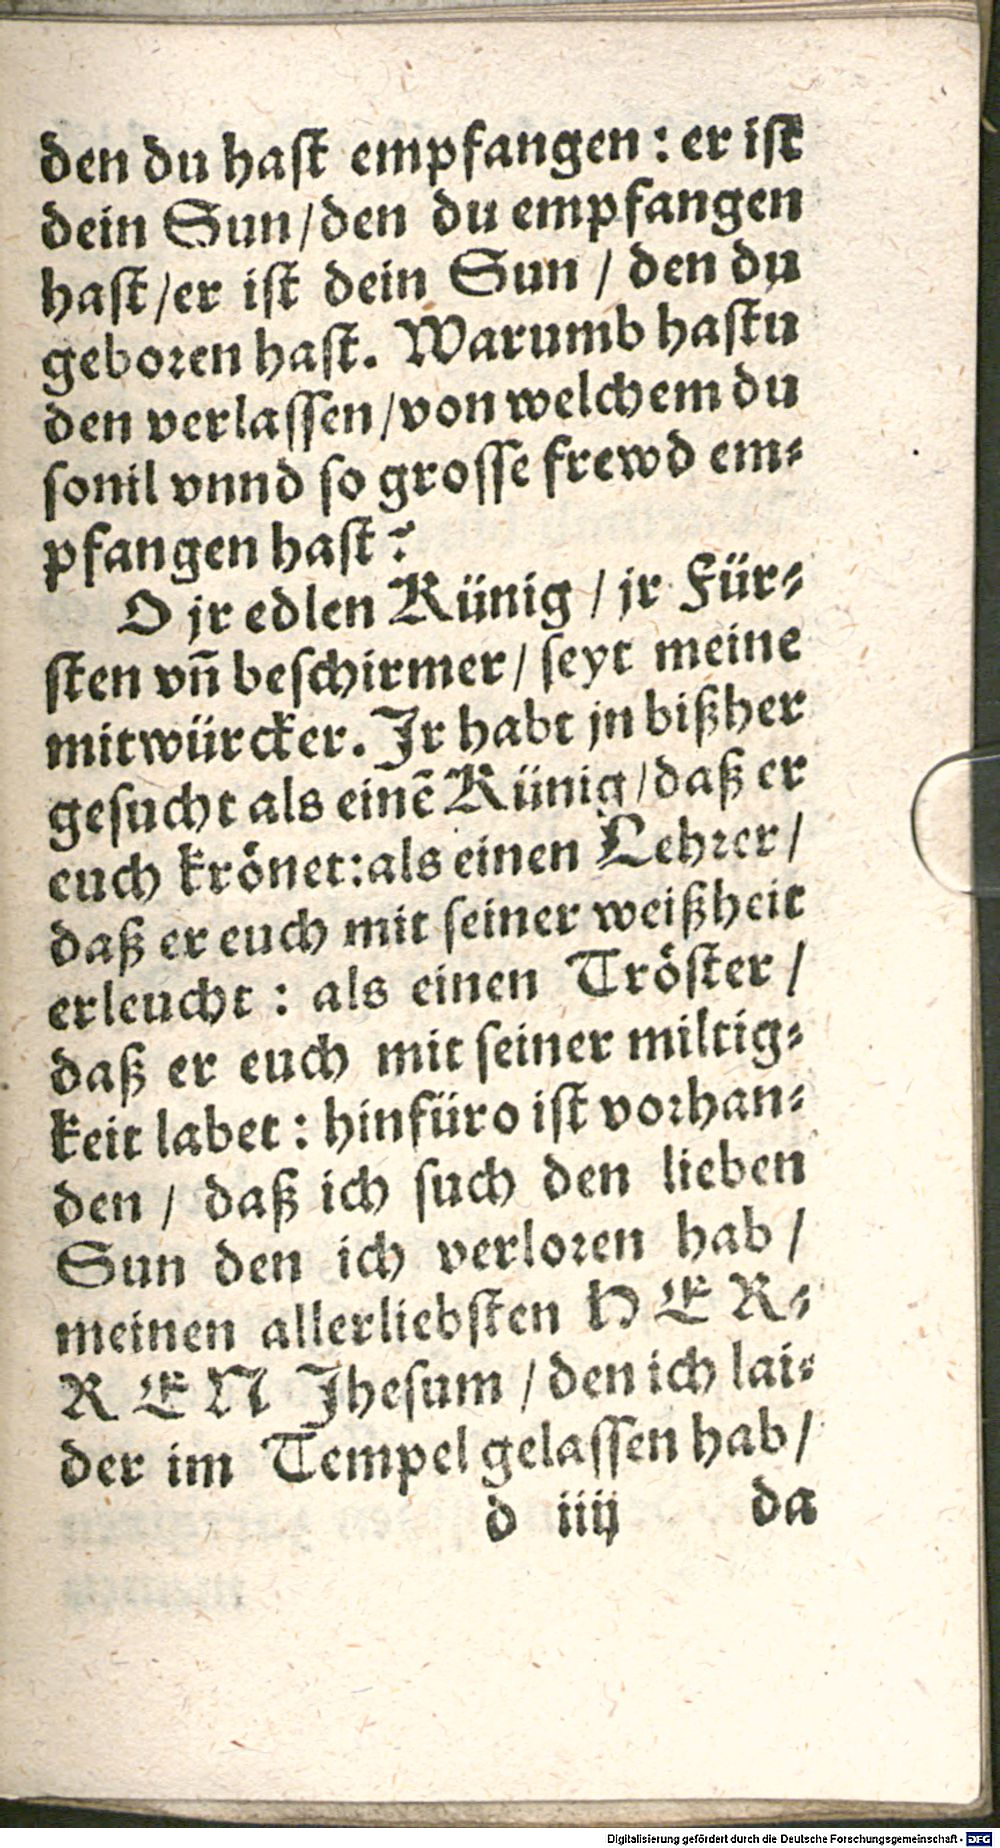 den du haſt empfangen: er iſt
dein Sun/den du empfangen
haſt/er iſt dein Sun / den du
geboꝛen haſt. Warumb haſtu
den verlaſſen/von welchem du
ſouil vnnd ſo groſſe frewd em⸗
pfangen haſt?
O jr edlen Künig / jr Für⸗
ſten vñ beſchirmer/ ſeyt meine
mitwürcker. Jr habt jn bißher
geſucht als einē Künig/daß er
euch krönet:als einen Lehꝛer/
daß er euch mit ſeiner weißheit
erleucht : als einen Tröſter /
daß er euch mit ſeiner miltig⸗
keit labet : hinfüro iſt voꝛhan⸗
den / daß ich ſuch den lieben
Sun den ich verloꝛen hab /
meinen allerliebſten HER⸗
REN Jheſum / den ich lai⸗
der im Tempel gelaſſen hab/
d iiij da
Digitalisierung gefördert durch die Deutsche Forschungsgemeinschaft - DFG